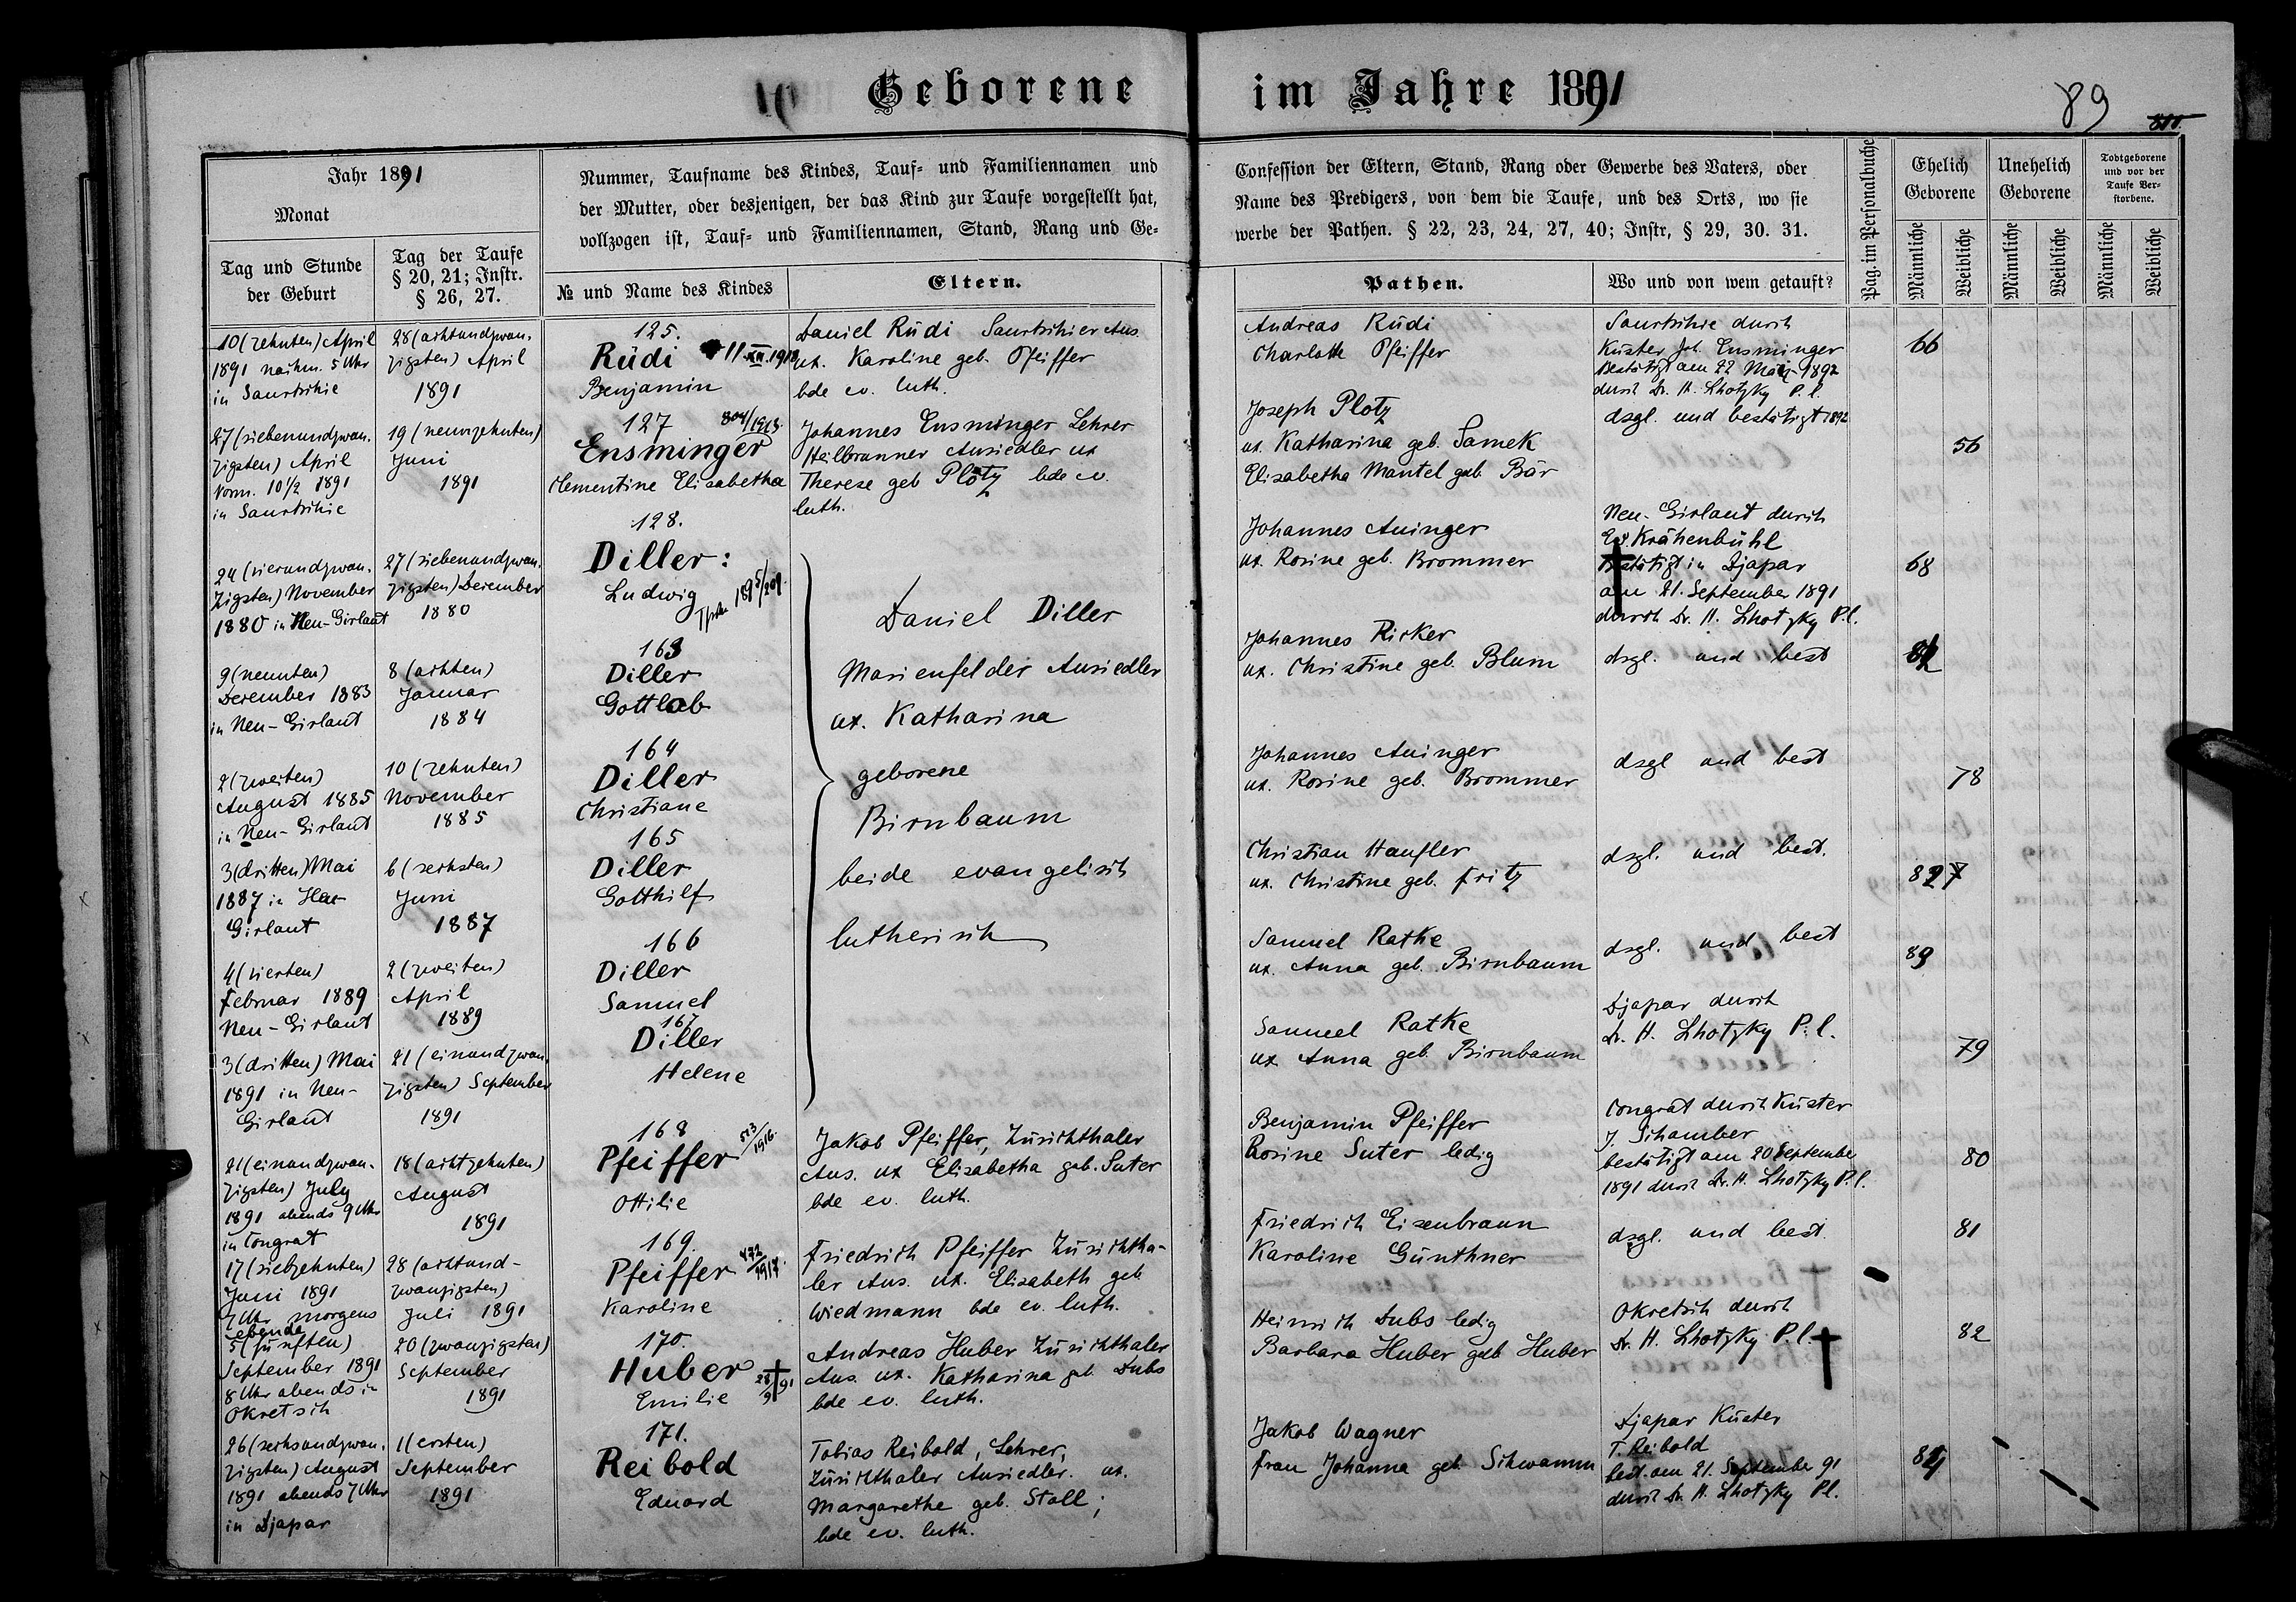 Geborene im Jahre 1891
89
Jahr 1891
Monat
Tag und Stunde
der Geburt
Tag der Taufe
§ 20, 21; Instr.
§ 26, 27.
Nummer, Taufname des Kindes, Tauf- und Familiennamen und
der Mutter, oder desjenigen, der das Kind zur Taufe vorgestellt hat,
vollzogen ist, Tauf- und Familiennamen, Stand, Rang und Ge-
№ und Name des Kindes
Eltern.
Confession der Eltern, Stand, Rang oder Gewerbe des Vaters, oder
Name des Predigers, von dem die Taufe, und des Orts, wo sie
werbe der Pathen. § 22, 23, 24, 27, 40; Instr, § 29, 30. 31.
Pathen.
Wo und von wem getauft?
Pag. im Personalbuche
Ehelich
Geborene
Unehelich
Geborene
Todtgeborene
und vor der
Taufe Ver-
storbene.
Männliche
Weibliche
Männliche
Weibliche
Männliche
Weibliche
10 (zehnten) April
1891 nachm. 5 Uhr
in Saurtschie
28 (achtundzwan-
zigsten) April
1891
125.
Rüdi 11 XII. 1913
Benjamin
Daniel Rüdi Saurtschier Ans.
ux. Karoline geb. Pfeiffer
bde ev. luth.
Andreas Rüdi
Charlotte Pfeiffer
Saurtschie durch
Küster Joh. Ensminger
Bestätigt am 22 März 1892
durch Dr. H. Lhotzky P. l.
66
27 (siebenundzwan-
zigsten) April
Vorm. 10 1/2 1891
in Saurtschie
19 (neunzehnten)
Juni
1891
127 804/1913.
Ensminger
Clementine Elisabetha
Johannes Ensminger Lehrer
Heilbrunner Ansiedler ux
Therese geb Plötz bde ev.
luth.
Joseph Plotz
ux. Katharina geb. Samek
Elisabetha Mantel geb. Bär
dsgl. und bestätigt 1892
56
24 (vierundzwan-
zigsten) November
1880 in Neu-Girlaut
27 (siebenundzwan-
zigsten) Dezember
1880
128.
Diller:
Ludwig
Daniel Diller
Marienfelder Ansiedler
ux. Katharina
geborene
Birnbaum
beide evangelisch
lutherisch
Johannes Auinger
ux. Rosine geb. Brommer
Neu-Girlaut durch
Ed. Krähenbühl
bestätigt in Djapar
am 21. September 1891
durch Dr. H. Lhotzky P.l.
68
9 (neunten)
Dezember 1883
in Neu-Girlaut
8 (achten)
Januar
1884
163
Diller
Gottlob
Johannes Ricker
ux. Christine geb. Blum
dsgl. und best
2 (zweiten)
August 1885
in Neu-Girlaut
10 (zehnten)
November
1885
164
Diller
Christiane
Johannes Auinger
ux. Rosine geb. Brommer
dsgl und best
78
3 (dritten) Mai
1887 in
Girlaut
6 (sechsten)
Juni
1887
165
Diller
Gotthilf
Christian Haufler
ux. Christine geb. Fritz
dsgl. und best.
4 (vierten)
Februar 1889
Neu-Girlaut
2 (zweiten)
April
1889
166
Diller
Samuel
Samuel Ratke
ux. Anna geb. Birnbaum
dsgl. und best
83
3 (dritten) Mai
1891 in Neu-
Girlaut
21 (einundzwan-
zigsten) September
1891
167
Diller
Helene
Samuel Ratke
ux Anna geb. Birnbaum
Djapar durch
Dr. H. Lhotzky P. l.
79
21 (einundzwan-
zigsten) July
1891 abends 9 Uhr
in Tongrat
18 (achtzehnten)
August
1891
168
Pfeiffer
Ottilie
Jakob Pfeiffer, Zürichthaler
Ans. ux Elisabetha geb. Suter
bde ev. luth.
Benjamin Pfeiffer
Rosine Suter ledig
Tongrat durch Küster
J. Schamber
bestätigt am 20 September
1891 durch Dr. H. Lhotzky P. l.
80
17 (siebzehnten)
Juni 1891
7 Uhr morgens
ebenda
28 (achtund-
zwanzigsten)
Juli 1891
169.
Pfeiffer
Karoline
Friedrich Pfeiffer Zürichtha-
ler Ans. ux. Elisabeth geb
Wiedmann bde ev. luth.
Friedrich Eisenbraun
Karoline Günthner
dsgl. und best.
81
5 (fünften)
September 1891
8 Uhr abends in
Okretsch
20 (zwanzigsten)
September
1891
170.
Huber 28/9 91
Emilie
Andreas Huber Zürichthaler
Ans. ux. Katharina geb. Dubs
bde ev. luth.
Heinrich Dubs ledig
Barbara Huber geb Huber
Okretsch durch
Dr. H. Lhotzky P. l.
82
26 (sechsundzwan-
zigsten) August
1891 abends 7 Uhr
in Djapar
1 (ersten)
September
1891
171.
Reibold
Eduard
Tobias Reibold, Lehrer,
Zürichthaler Ansiedler. ux.
Margarethe geb. Stoll;
bde ev. luth.
Jakob Wagner
Frau Johanna geb. Schwamm
Djapar Küster
T. Reibold
best. am 21. September 91
durch Dr. H. Lhotzky Pl.
84